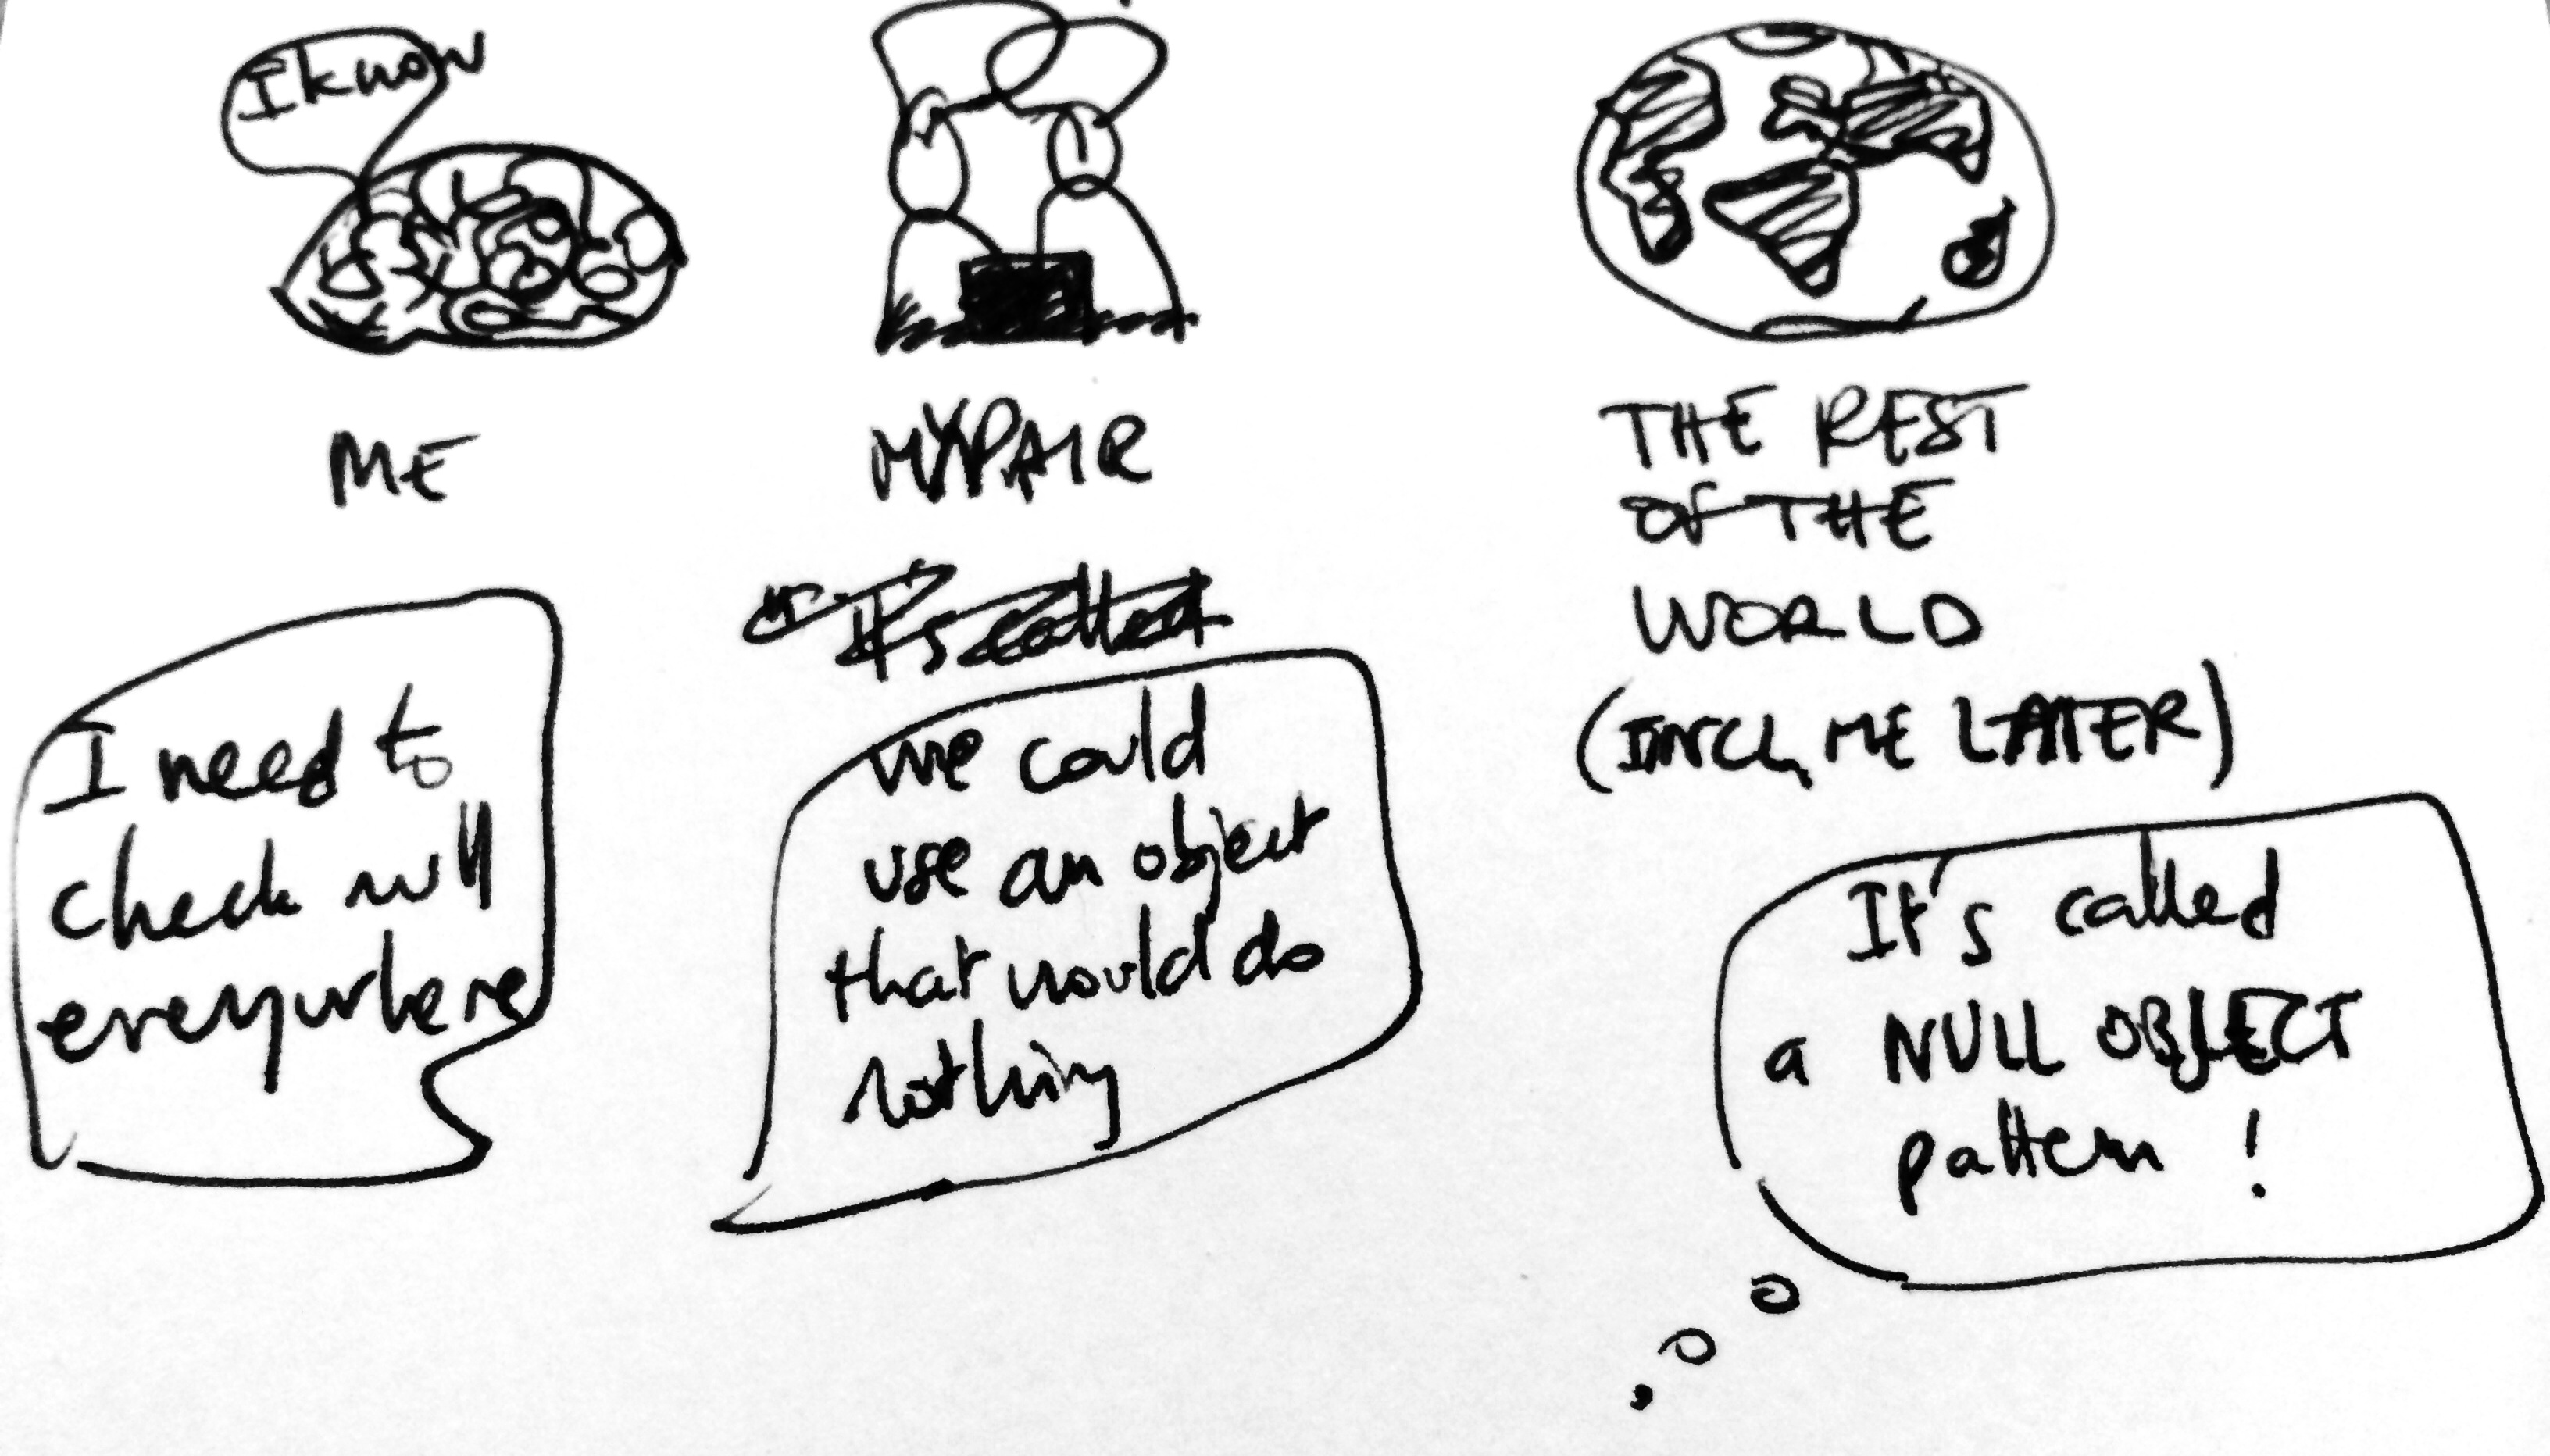 I know
ME
I need to
check null
everywhere
MY PAIR
It's called
we could
use an object
that would do
nothing
THE REST
OF THE
WORLD
(INCL, ME LATER)
It's called
a NULL OBJECT
pattern !